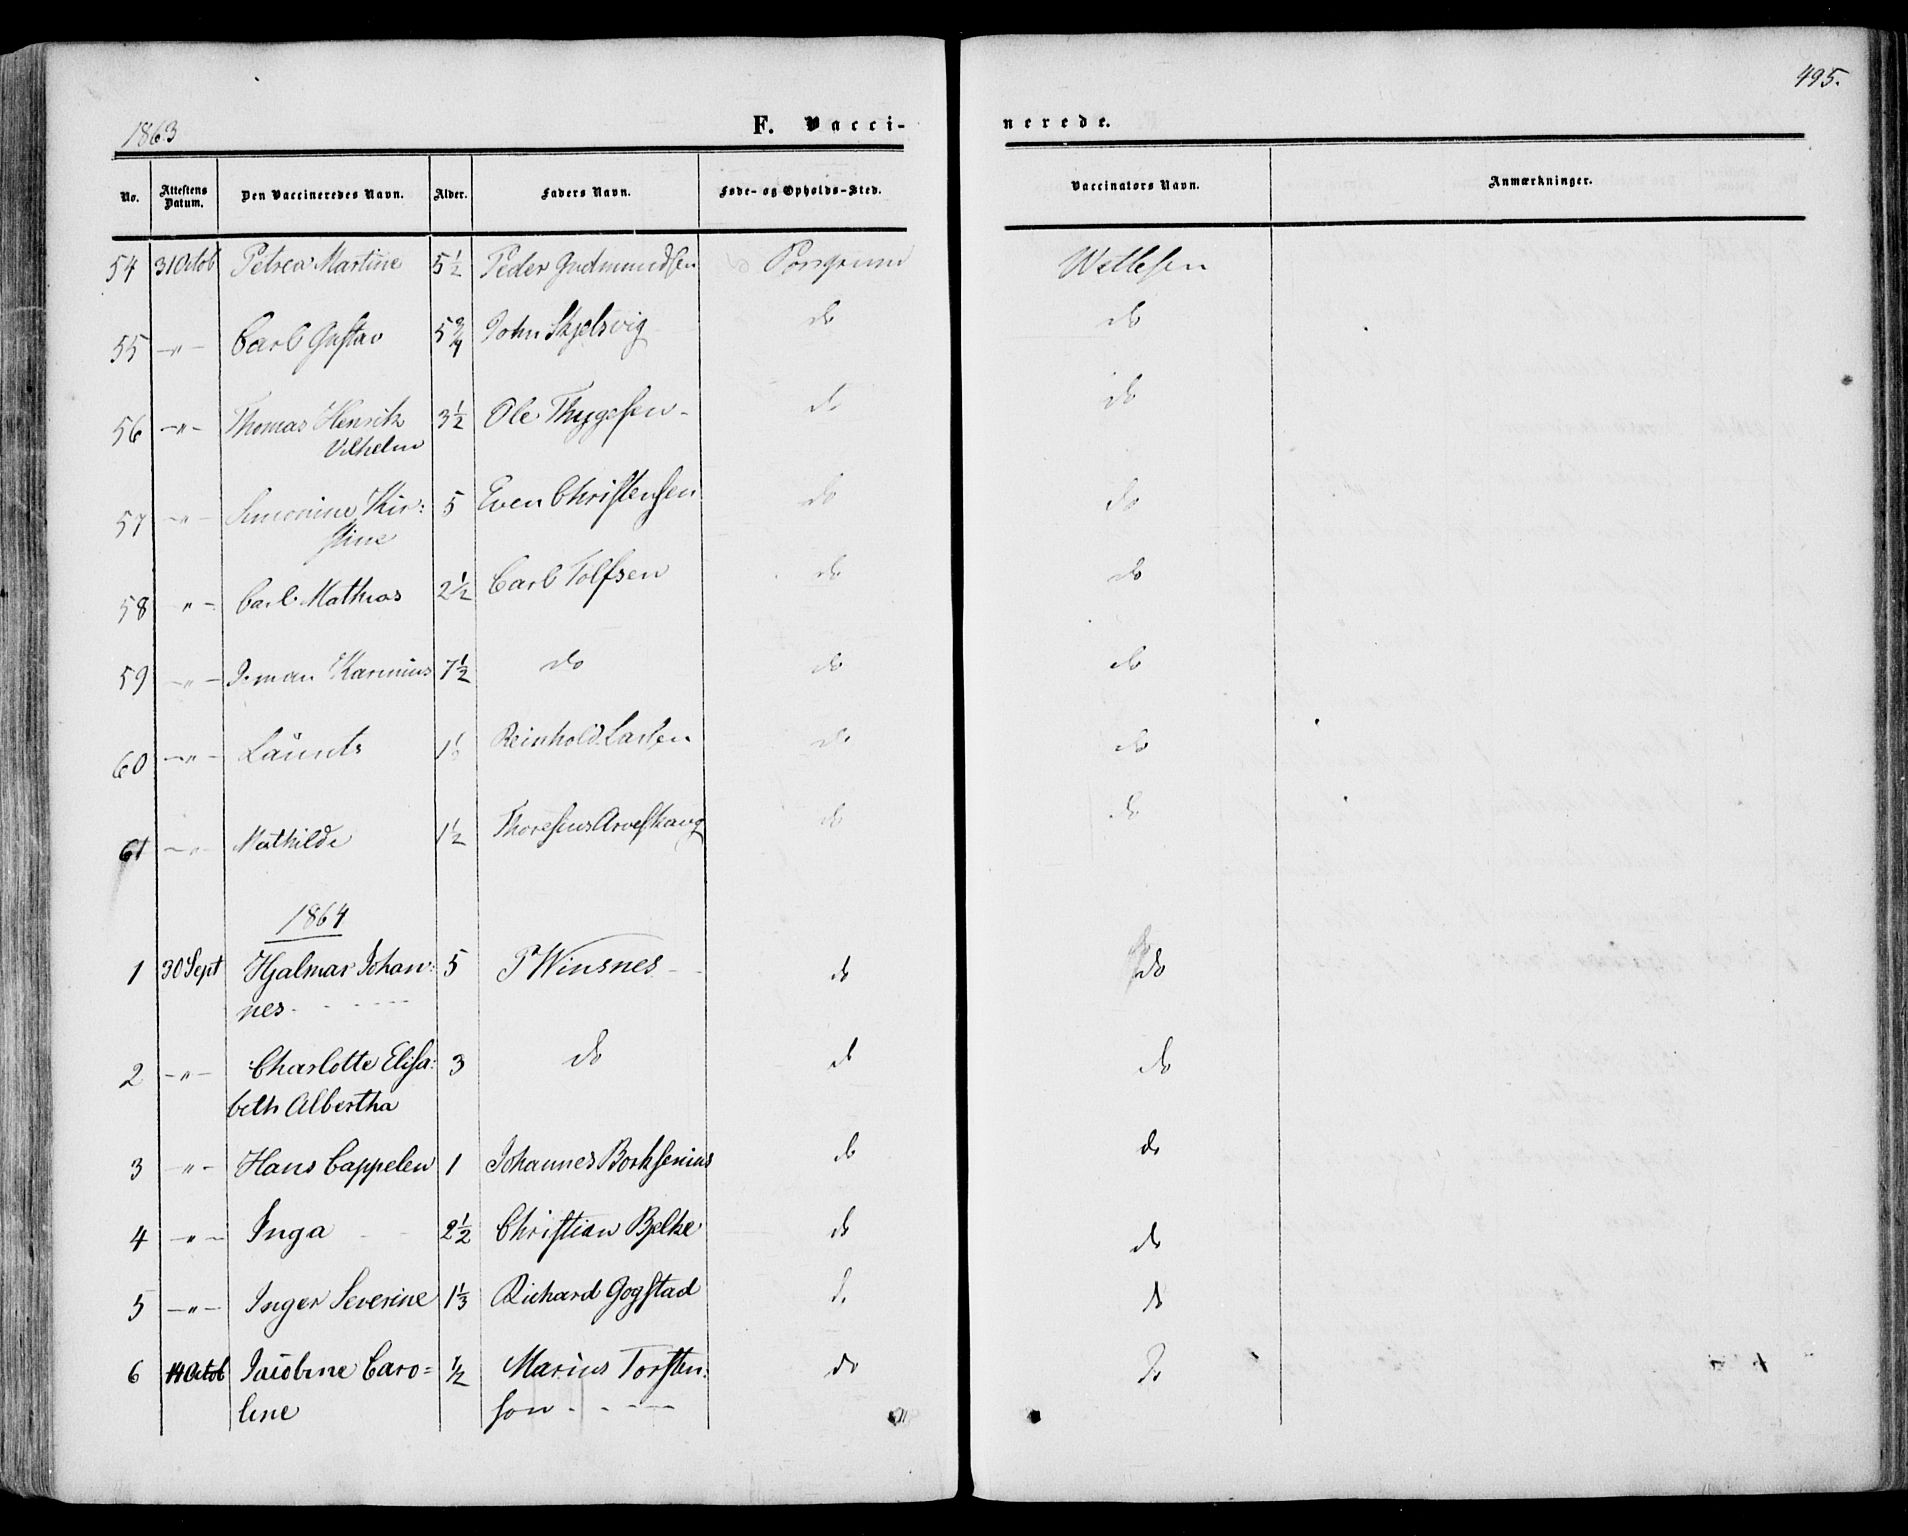 1863 F. Vacci- nerede. 495.
No. Attestens Datum. Den Vaccineredes Navn. Alder. Faders Navn. Føde- og Opholds-Sted. Vaccinators Navn. Anmærkninger.
54 31 Octob Petrea Martine 5 1/2 Peder Gudmundsen Porsgrund Willesen
55 -"- Carl Gustav 5 3/4 John Skjelsvig do do
56 -"- Thomas Henrik 3 1/2 Ole Thygesen do do
Vilhelm
57 -"- Kir: 5 Even Christensen do do
stine
58 -"- Carl Mathias 2 1/2 Carl Tolfsen do do
59 -"- Karinius 7 1/2 do do do
60 -"- Laurits 1 Reinhold Larsen do do
61 -"- Mathilde 1 1/2 do do
1864
1 30 Sept Hjalmar Johan: 5 P Winsnes do do
nes
2 -"- Charlotte Elisa: 3 do do do
beth Albertha
3 -"- Hans Cappelen 1 Johannes Borksenius do do
4 -"- Inga 2 1/2 Christian Bjelke do do
5 -"- Inger Severine 1 1/3 Richard Gogstad do do
6 14 Octob Jacobine Caro= 1/2 Marius Torsten: do do
line son